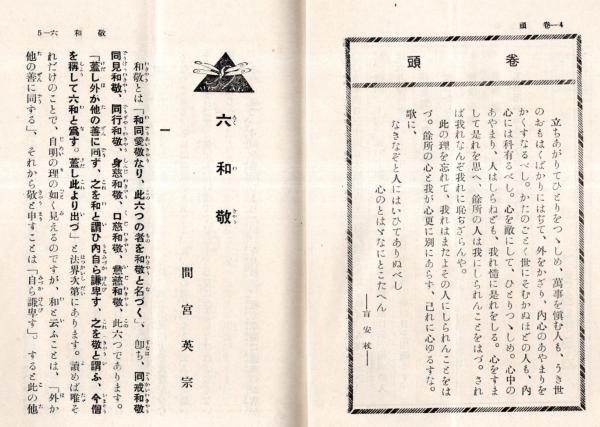 頭　卷―4
卷頭
立ちあがりてひとりをつゝしめ、萬事を愼む人も、うき世
のおもはくばかりにはぢて、外をかざり、內心のあやまりを
かくすなるべし。かたのごとく世にそむかぬほどの人も、內
心には科有るべし。心を敵にして、ひとりつゝしめ。心中の
あやまり、人はしらねども、我れ慥に是れをしる。心をすま
して是れを思へ、餘所の人は我にしられんことをはづ。され
ば我れなんぞ我れに恥ぢざらんや。
此の理を忘れて、我れはまたよその人にしられんことをは
づ。餘所の心と我が心更に別にあらず、己れに心ゆるすな。
歌に、
なきなぞと人にはいひてありぬべし
心のとはゞなにとこたへん
――盲安杖――
敬　和　六―5
六和敬
間宮英宗
一
和敬とは「和同愛敬なり、此六つの者を和敬と名づく」、卽ち、同戒和敬
同見和敬、同行和敬、身慈和敬、口慈和敬、意慈和敬、此六つであります。
「蓋し外か他の善に同ず、之を和と謂ひ內自ら謙卑す、之を敬と謂ふ、今僧
を稱して六和と爲す。蓋し此より出づ」と法界次第にあります。讀めば唯そ
れだけのことで、自明の理の如く見えるのですが、和と云ふことは、「外か
他の善に同する」、それから敬と申すことは「自ら謙卑す」。すると此の他